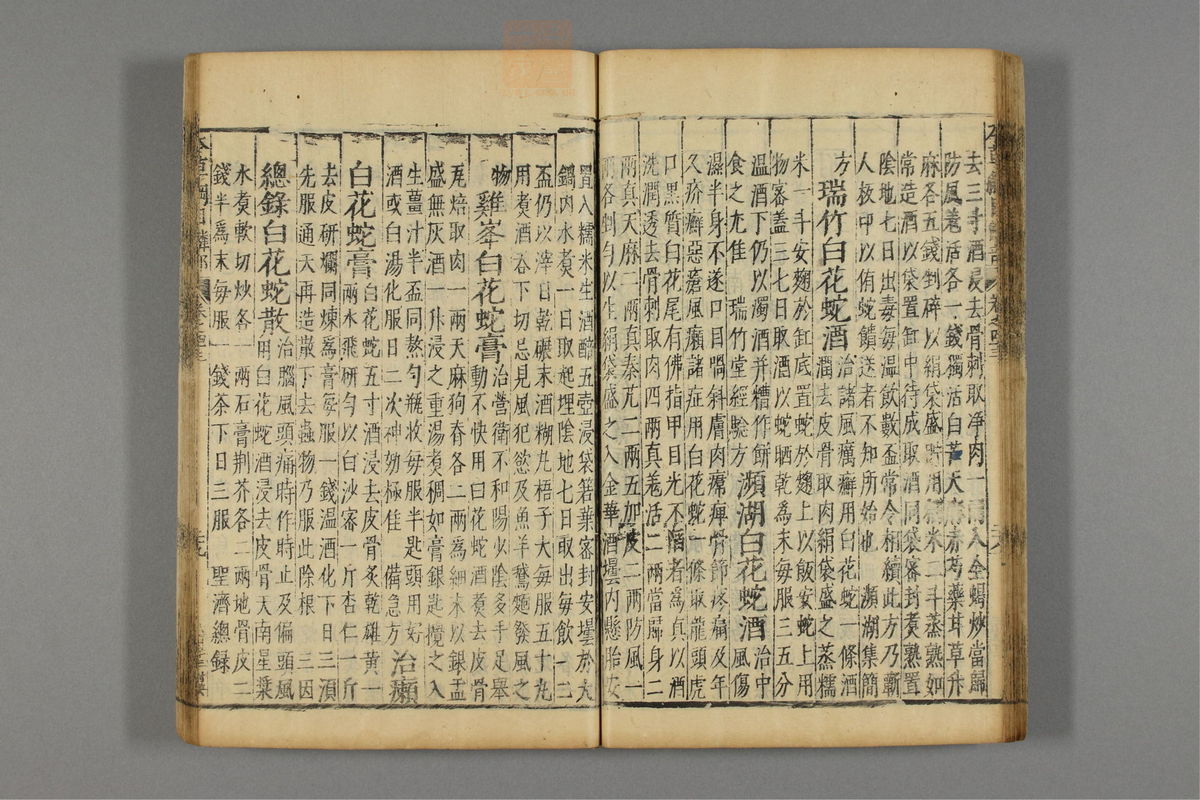 去三寸酒浸去骨刺取净肉一兩入全蝎炒當歸
防風羗活各一錢獨活白芷天麻赤芍藥甘草升
麻各五錢剉碎以絹袋盛貯用糯米二斗蒸熟如
常造酒以袋置缸中待成取酒同袋密封煮熟置
陰地七日出毒每温飲數盃常令相續此方乃蘄
人板印以侑蛇饋送者不知所始也 瀕湖集簡
方 瑞竹白花蛇酒 治諸風癘癬用白花蛇一條酒
潤去皮骨取肉絹袋盛之蒸糯
米一斗安麴於缸底置蛇於麴上以飯安蛇上用
物密蓋三七日取酒以蛇晒乾為末每服三五分
温酒下仍以濁酒并糟作餅
食之尤佳 瑞竹堂經驗方 瀕湖白花蛇酒 治中
風傷
濕半身不遂口目喎斜膚肉㿏痺骨節疼痛及年
久疥癬惡瘡風癩諸症用白花蛇一條取龍頭虎
口黑質白花尾有佛指甲目光不陷者為真以酒
洗潤透去骨刺取肉四兩真羗活二兩當歸身二
兩真天麻二兩真秦艽二兩五加皮二兩防風一
兩各剉匀以生絹袋盛之入金華酒壜内懸胎安
置入糯米生酒醅五壺浸袋箬葉密封安壜於大
鍋内水煮一日取起埋陰地七日取出每飲一二
盃仍以滓日乾碾末酒糊丸梧子大每服五十丸
用煮酒吞下切忌見風犯慾及魚羊鵝麵發風之
物 雞峯白花蛇膏 治營衛不和陽少陰多手足舉
動不快用白花蛇酒煮去皮骨
瓦焙取肉一兩天麻狗脊各二兩為細末以銀盂
盛無灰酒一升浸之重湯煮稠如膏銀匙攪之入
生薑汁半盃同熬匀瓶收每服半匙頭用好
酒或白湯化服日二次神効極佳 備急方 治癩
白花蛇膏 白花蛇五寸酒浸去皮骨炙乾雄黃一
兩水飛研匀以白沙蜜一斤杏仁一斤
去皮研爛同煉為膏每服一錢温酒化下日三須
先服通天再造散下去蟲物乃服此除根 三因
總錄白花蛇散 治腦風頭痛時作時止及偏頭風
用白花蛇酒浸去皮骨天南星漿
水煮軟切炒各一兩石膏荆芥各二兩地骨皮二
錢半為末每服一錢茶下日三服 聖濟總錄